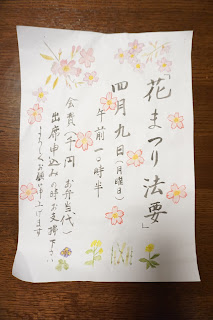 「花まつり法要」
四月九日（月曜日）
午前一〇時半
会費（千円 お弁当代）
出席申込みの時お支払下さい
よろしくお願い申し上げます